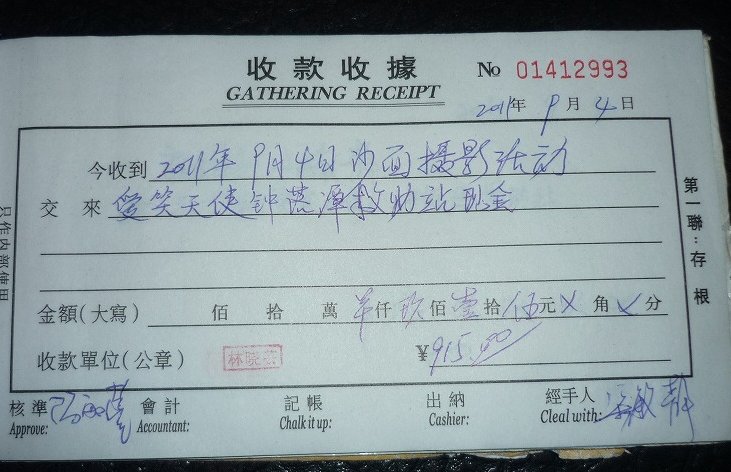 收款收據
GATHERING RECEIPT
No 01412993
2011年 9月 4日
今收到 2011年9月4日沙面摄影活动
交來 爱笑天使钟落潭救助站现金
金額(大寫) 佰 拾 萬 仟 玖佰 壹拾 伍元 角 分
收款單位(公章) ¥915.00
核準 會計 記帳 出納 經手人
Approve: Accountant: Chalk it up: Cashier: Cleal with:
第一聯:存根
只作内部使用